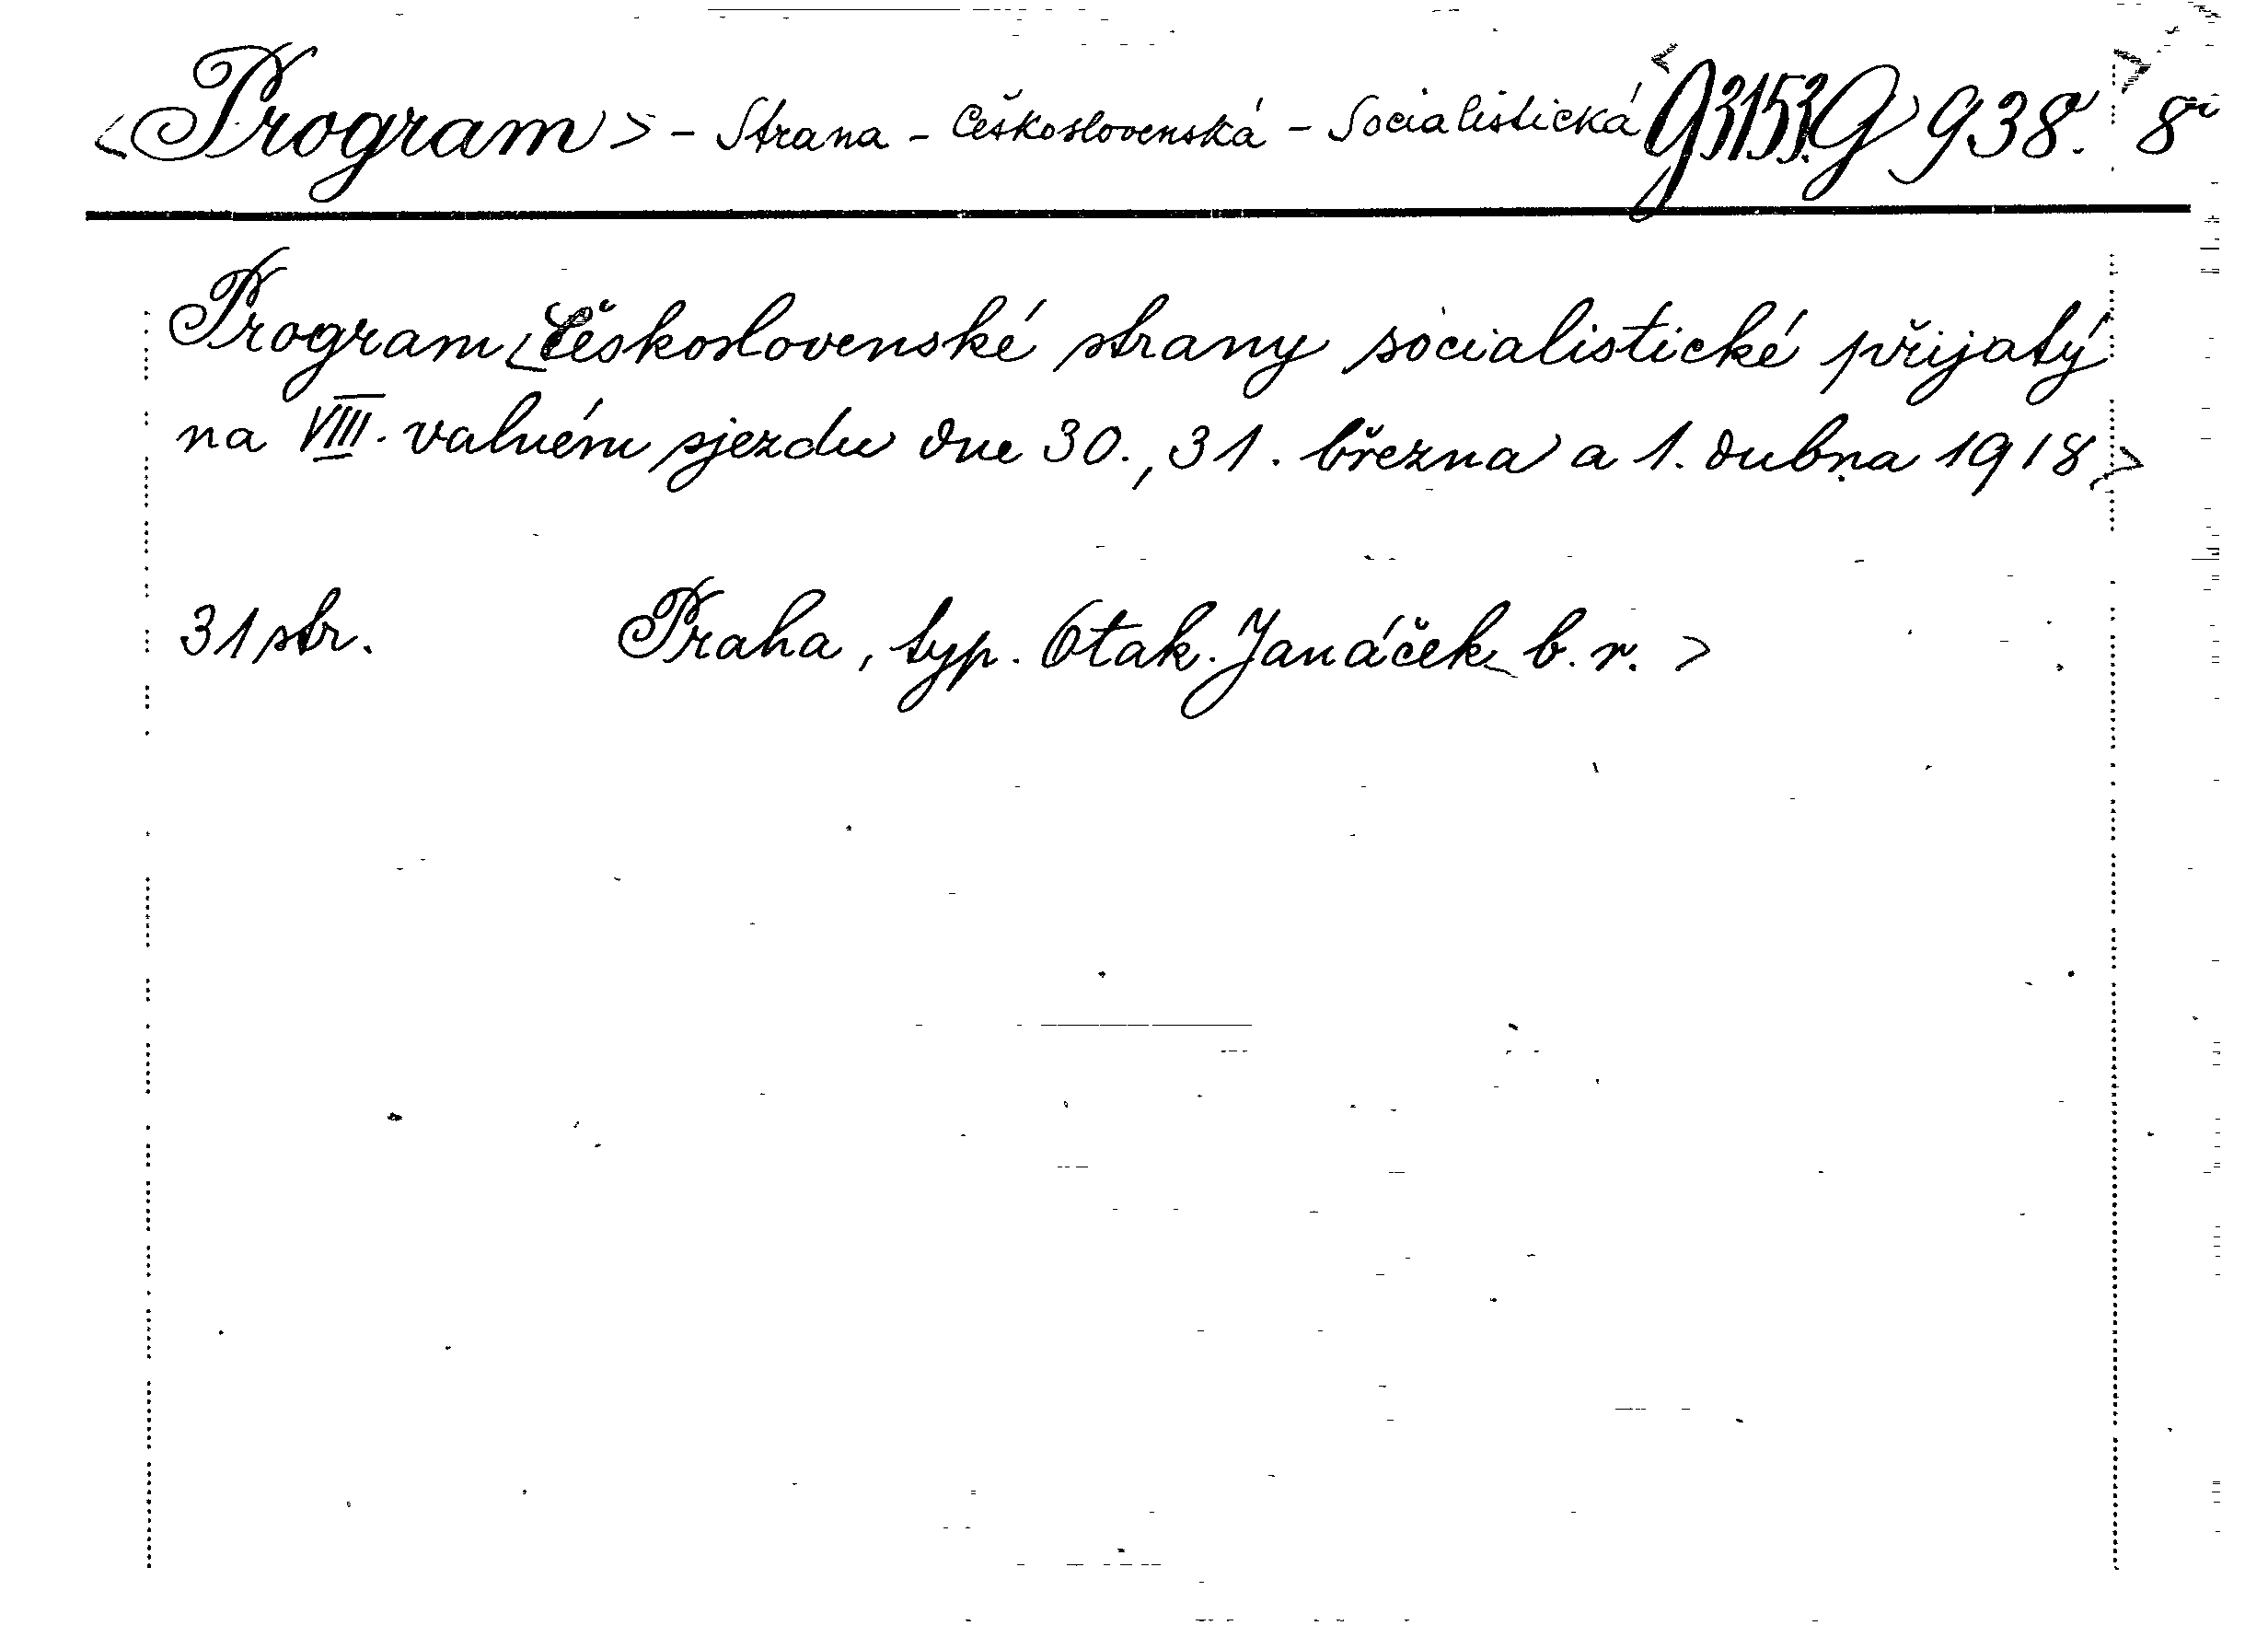 <Program> - Strana - Československá - Socialistická <G 938.> 8°
Program <Československé strany socialistické přijatý
na VIII. valném sjezdu dne 30., 31. března a 1. dubna 1918>
31 str. Praha, typ. Otak. Janáček b. r. >